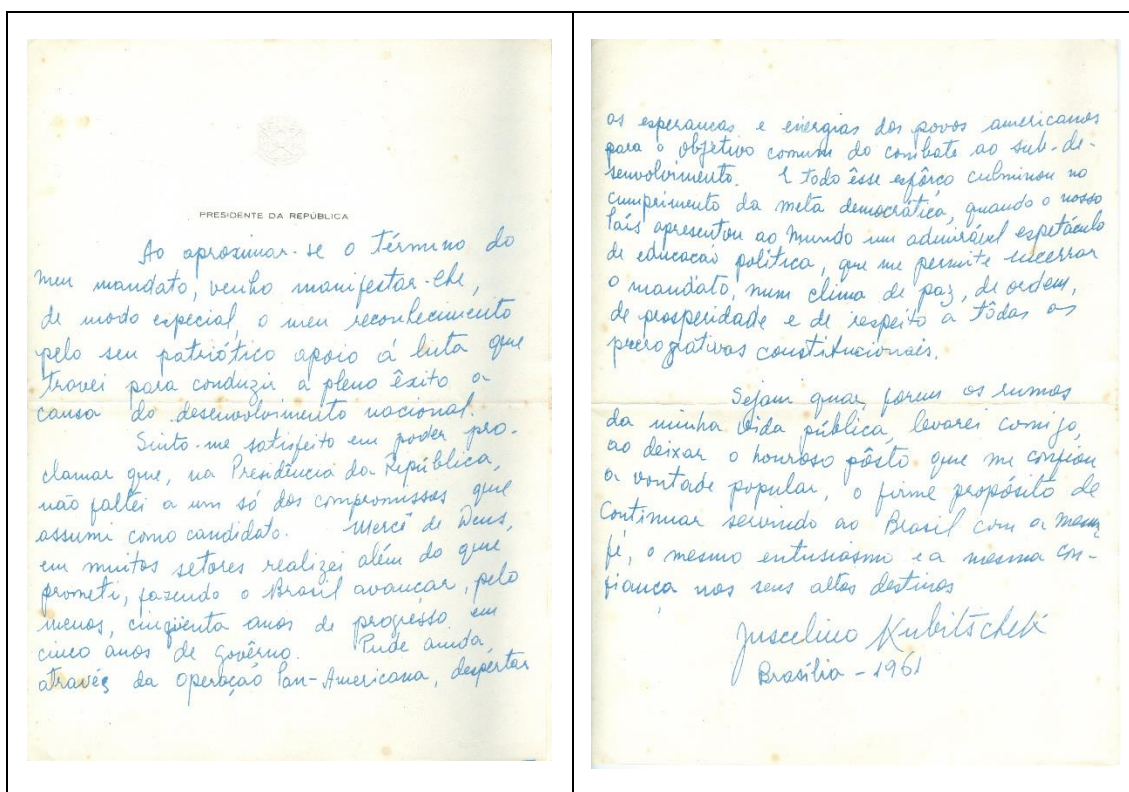 PRESIDENTE DA REPÚBLICA
Ao aproximar-se o término do
meu mandato, venho manifestar-lhe,
de modo especial, o meu reconhecimento
pelo seu patriótico apoio á luta que
travei para conduzir a pleno êxito a
causa do desenvolvimento nacional.
Sinto-me satisfeito em poder pro-
clamar que, na Presidência da República,
não faltei a um só dos compromissos que
assumi como candidato. Mercê de Deus,
em muitos setores realizei além do que
prometi, fazendo o Brasil avancar, pelo
menos, cinqüenta anos de progresso em
cinco anos de govêrno. Pude ainda,
através da Operação Pan-Americana, despertar
as esperancas e energias dos povos americanos
para o objetivo comum do combate ao sub-de-
senvolvimento. E todo êsse esfôrco culminou no
cumprimento da meta democrática, quando o nosso
País apresentou ao Mundo um admirável espetáculo
de educacão política, que me permite encerrar
o mandato, num clima de paz, de ordem,
de prosperidade e de respeito a tôdas as
prerrogativas constitucionais.
Sejam quais forem os rumos
da minha vida pública, levarei comigo,
ao deixar o honroso pôsto que me confiou
a vontade popular, o firme propósito de
continuar servindo ao Brasil com a mesma
fé, o mesmo entusiasmo e a mesma con-
fiança nos seus altos destinos
Juscelino Kubitschek
Brasília - 1961